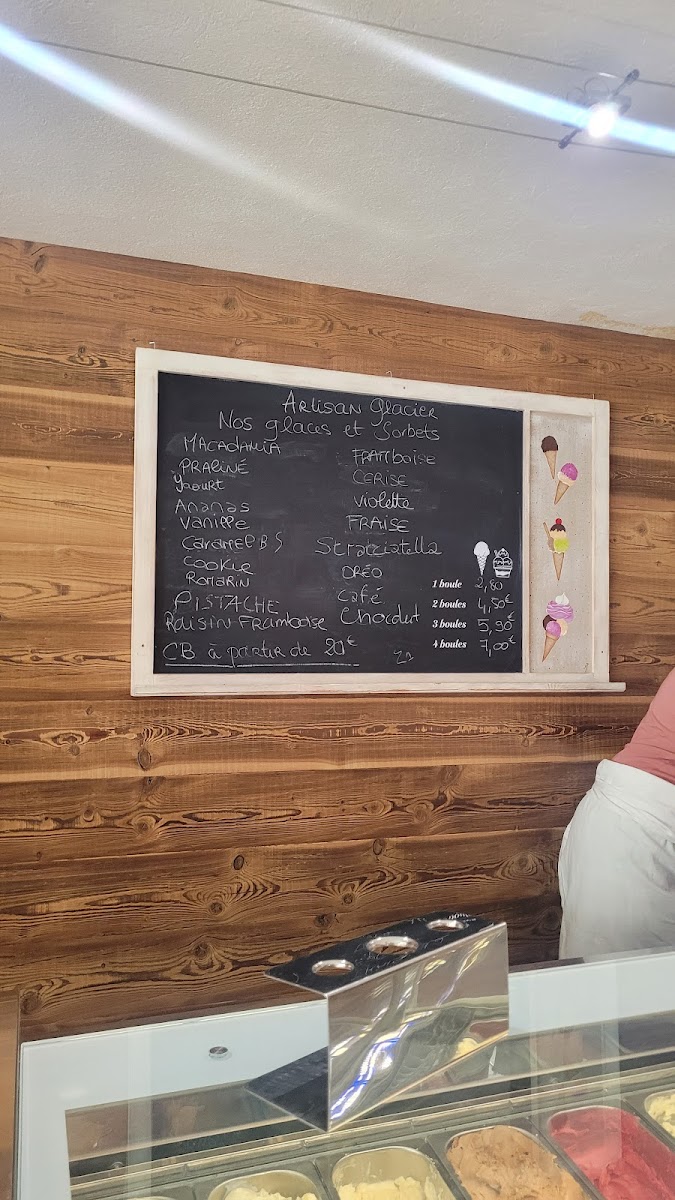 Artisan Glacier
Nos glaces et Sorbets
MACADAMIA
PRALINÉ
Yaourt
Ananas
Vanille
Caramel B S
Cookie
ROMARIN
PISTACHE
Raisin-FRAMBOISE
FRAMBOISE
CERISE
Violette
FRAISE
Stratciatella
ORÉO
Café
Chocolat
1 boule 2,80
2 boules 4,50€
3 boules 5,90€
4 boules 7,00€
CB à partir de 20€